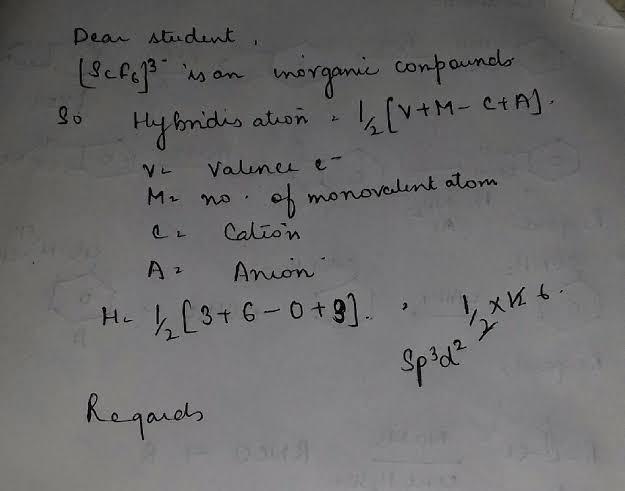 Dear student,
[ScF6]3- is an inorganic compounds
So Hybridisation = 1/2 [V+M-C+A].
V= Valence e-
M= no. of monovalent atom
C= Cation
A= Anion
H= 1/2 [3+6-0+3]. , 1/2 x 12 6.
sp3d2
Regards